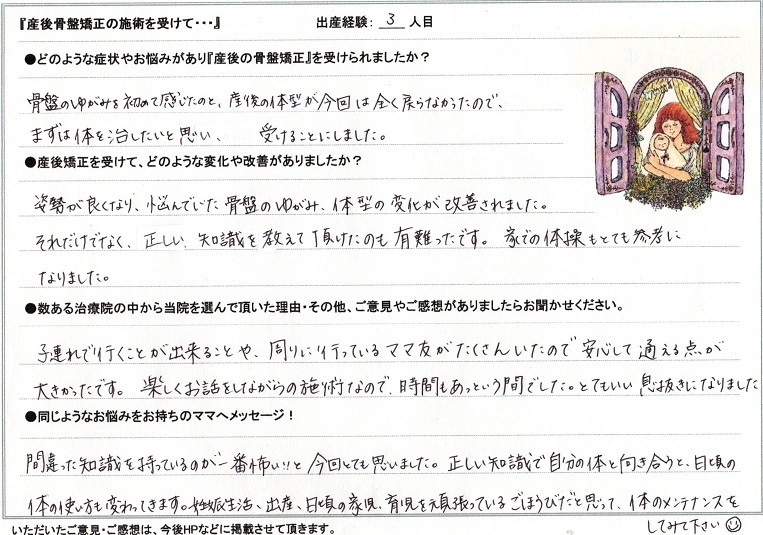 『産後骨盤矯正の施術を受けて・・・』 出産経験: 3 人目
●どのような症状やお悩みがあり『産後の骨盤矯正』を受けられましたか？
骨盤のゆがみを初めて感じたのと、産後の体型が今回は全く戻らなかったので、
まずは体を治したいと思い、 受けることにしました。
●産後矯正を受けて、どのような変化や改善がありましたか？
姿勢が良くなり、悩んでいた骨盤のゆがみ、体型の変化が改善されました。
それだけでなく、正しい知識を教えて頂けたのも有難ったです。家での体操もとても参考に
なりました。
●数ある治療院の中から当院を選んで頂いた理由・その他、ご意見やご感想がありましたらお聞かせください。
子連れで行くことが出来ることや、周りに行っているママ友がたくさんいたので安心して通える点が
大きかったです。楽しくお話をしながらの施術なので、時間もあっという間でした。とてもいい息抜きになりました
●同じようなお悩みをお持ちのママへメッセージ！
間違った知識を持っているのが一番怖い!!と今回とても思いました。正しい知識で自分の体と向き合うと、日頃の
体の使い方も変わってきます。妊娠生活、出産、日頃の家児、育児を頑張っているごほうびだと思って、体のメンテナンスを
してみて下さい☺
いただいたご意見・ご感想は、今後HPなどに掲載させて頂きます。